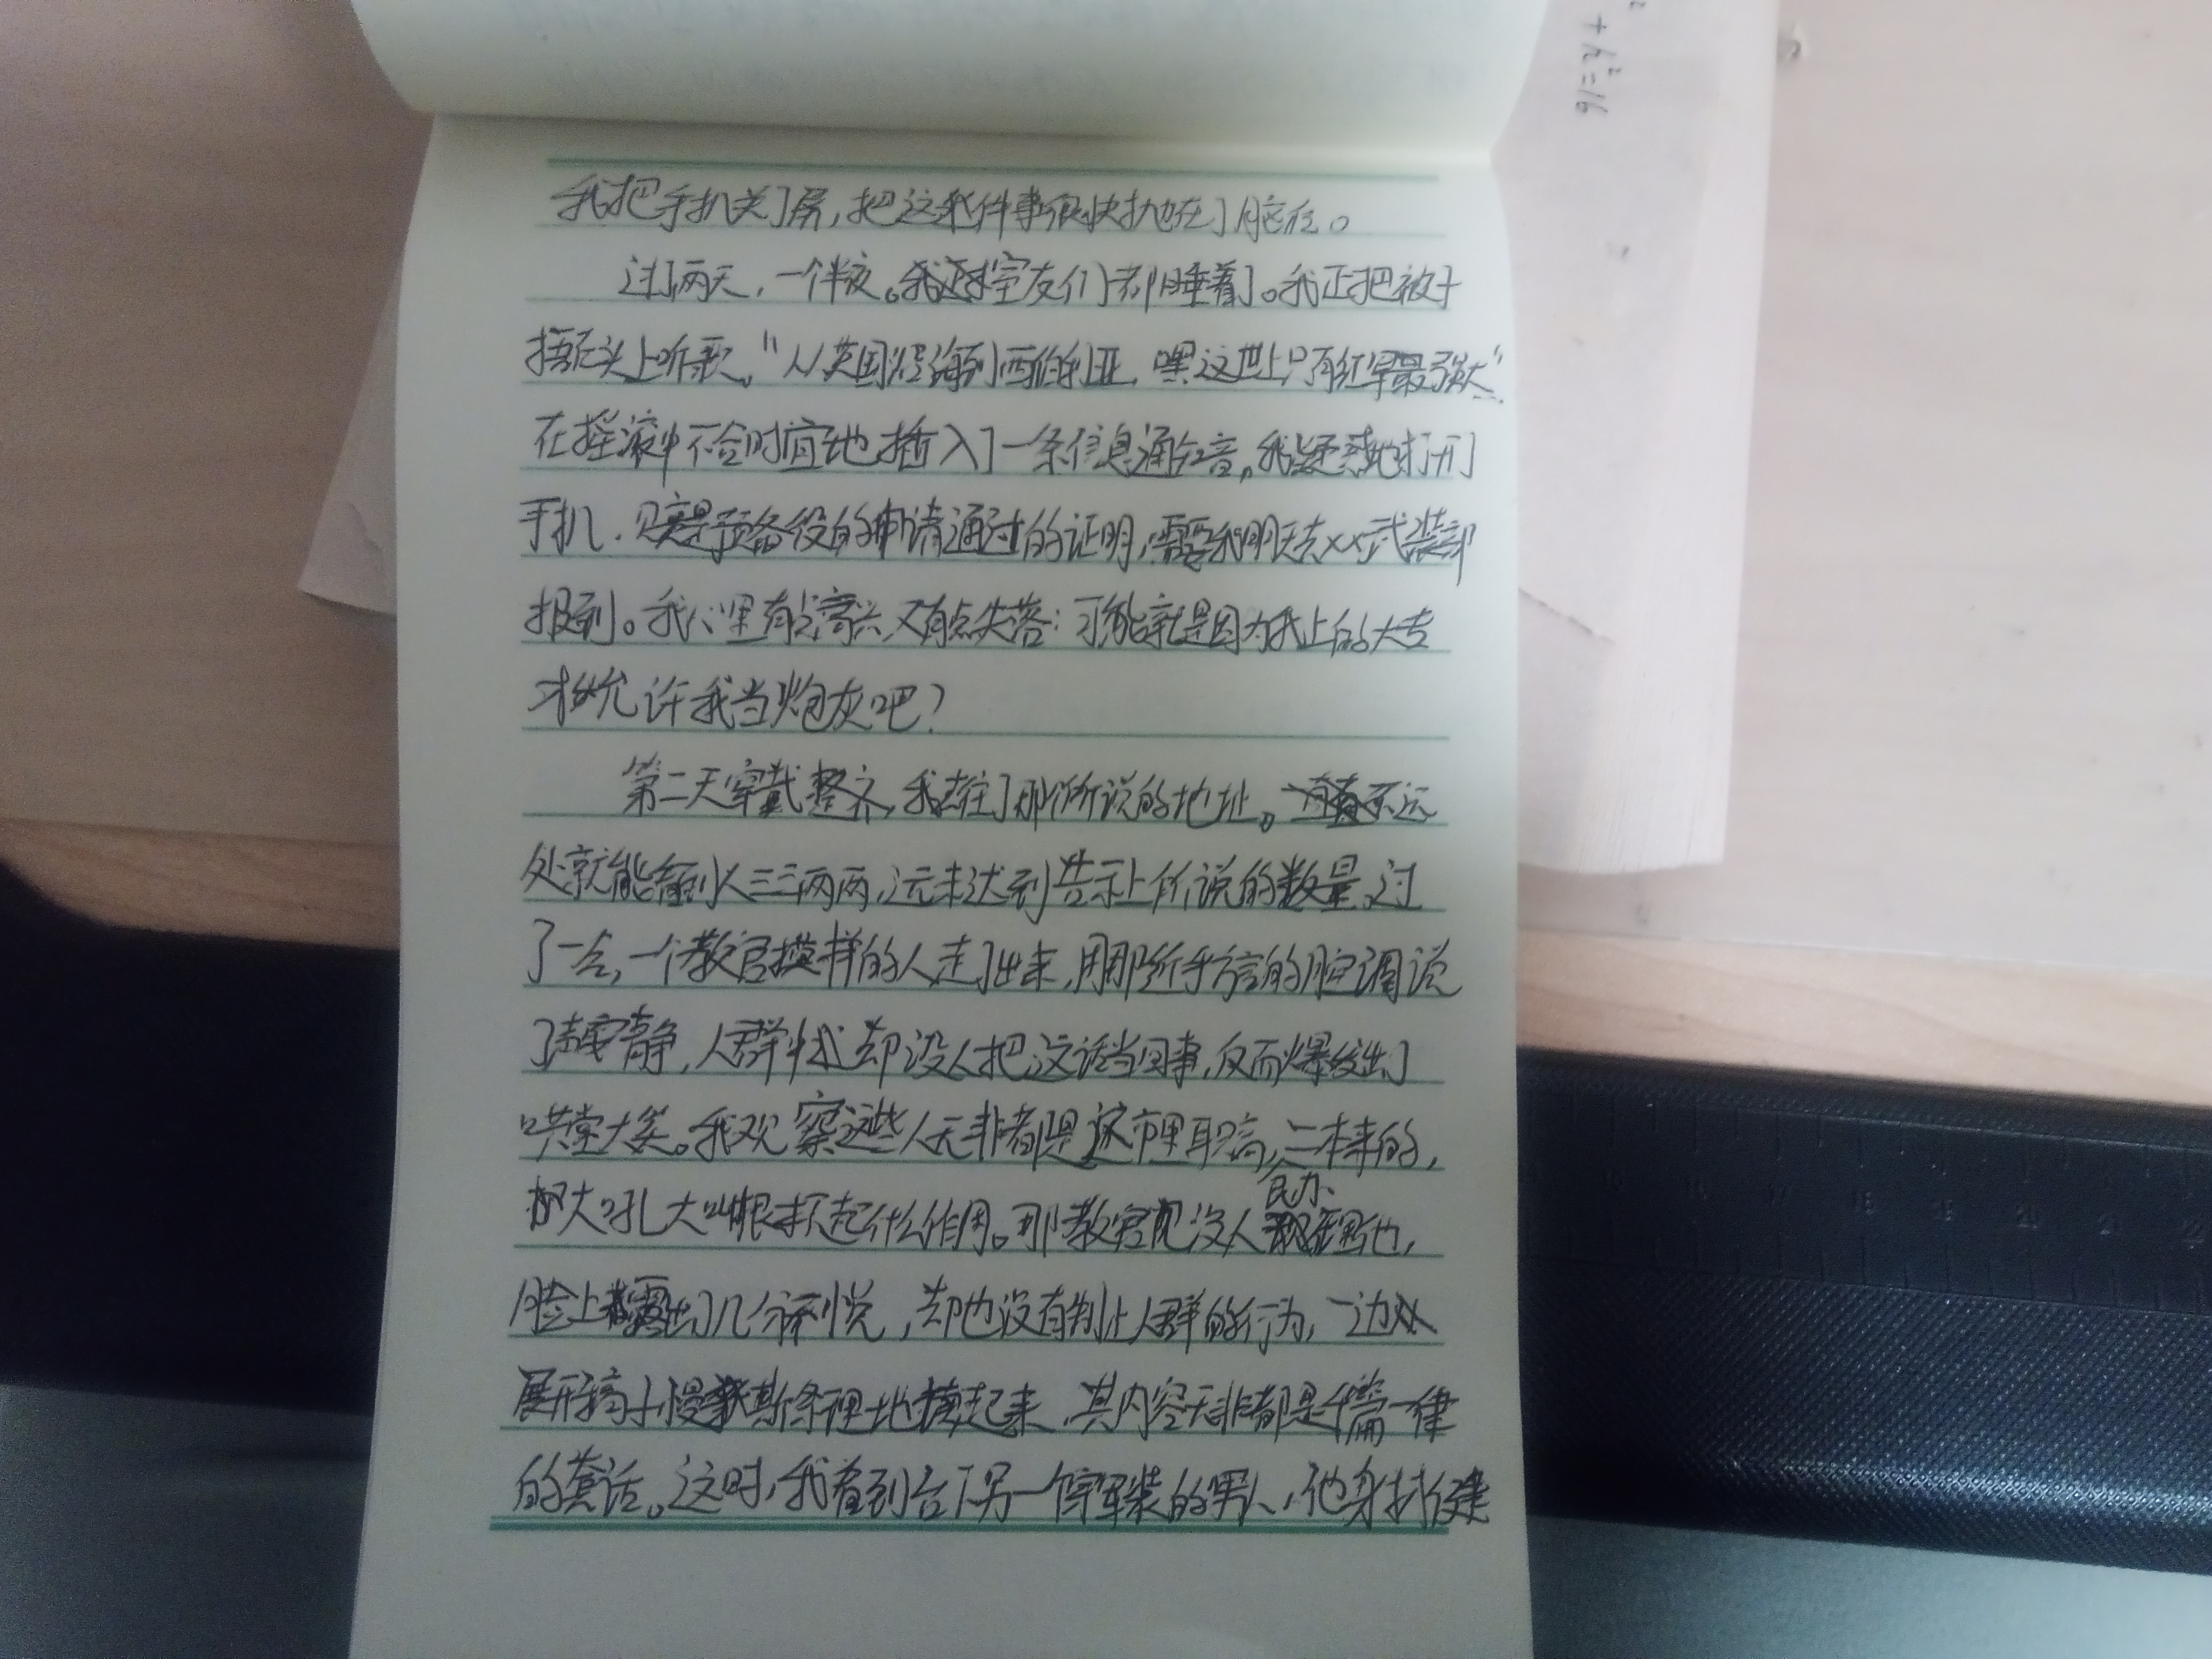 我把手机关了屏，把这件事很快抛在了脑后。
过了两天，一个半夜。室友们都睡着了。我正把被子
捂在头上听歌。"从英国沿海到西伯利亚，嘿这世上只有红军最强大"
在摇滚中不合时宜地插入了一条信息通知音。我疑惑地打开
手机，只是预备役的申请通过的证明，需要我明天去××武装部
报到。我心里有点高兴又有点失落：可能就是因为我上的大专
才允许我当炮灰吧？
第二天穿戴整齐，我去往了那所说的地址。不远
处就能看到人三三两两，远未达到告示上所说的数量。过
了一会，一个教官模样的人走了出来，用那近乎方言的腔调说
了声安静，人群却没人把这话当回事，反而爆发出了
哄堂大笑。我观察这些人无非都是这市里职高，民办二本来的，
大吼大叫根本不起什么作用。那教官见没人理他，
脸上露出了几分不悦，却也没有制止人群的行为，一边
展开稿子慢斯条理地读起来，其内容无非都是千篇一律
的套话。这时，我看到台下另一个穿军装的男人，他身材健
h²=16